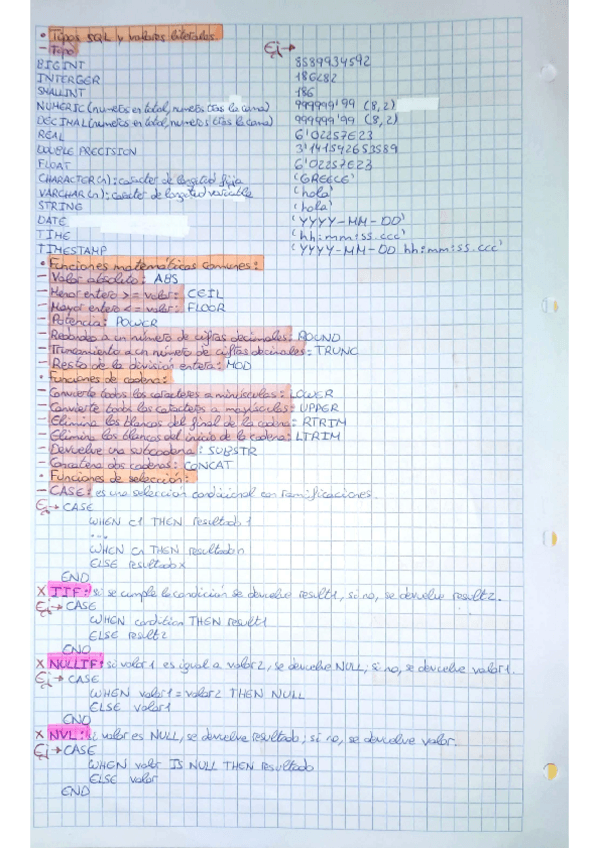 • Tipos SQL y valores literales
- Tipo Ej→
BIGINT 8589934592
INTERGER 186282
SMALLINT 186
NUMERIC (numeros en total, numeros tras la coma) 999999'99 (8,2)
DECIMAL (numeros en total, numeros tras la coma) 999999'99 (8,2)
REAL 6'02257E23
DOUBLE PRECISION 3'141592653589
FLOAT 6'02257E23
CHARACTER(n): caracter de longitud fija 'GREECE'
VARCHAR(n): caracter de longitud variable 'hola'
STRING 'hola'
DATE 'YYYY-MM-DD'
TIME 'hh:mm:ss.ccc'
TIMESTAMP 'YYYY-MM-DD hh:mm:ss.ccc'
• Funciones matemáticas comunes:
- Valor absoluto: ABS
- Menor entero >= valor: CEIL
- Mayor entero <= valor: FLOOR
- Potencia: POWER
- Redondeo a un número de cifras decimales: ROUND
- Truncamiento a un número de cifras decimales: TRUNC
- Resto de la division entera: MOD
• Funciones de cadena:
- Convierte todos los caracteres a minúsculas: LOWER
- Convierte todos los caracteres a mayúsculas: UPPER
- Elimina los blancos del final de la cadena: RTRIM
- Elimina los blancos del inicio de la cadena: LTRIM
- Devuelve una subcadena: SUBSTR
- Concatena dos cadenas: CONCAT
• Funciones de selección:
- CASE: es una selección condicional con ramificaciones.
Ej→ CASE
WHEN c1 THEN resultado1
...
WHEN cn THEN resultadon
ELSE resultadox
END
X IIF: si se cumple la condición se devuelve result1, si no, se devuelve result2.
Ej→ CASE
WHEN condition THEN result1
ELSE result2
END
X NULLIF: si valor1 es igual a valor2, se devuelve NULL; si no, se devuelve valor1.
Ej→ CASE
WHEN valor1 = valor2 THEN NULL
ELSE valor1
END
X NVL: si valor es NULL, se devuelve resultado; si no, se devuelve valor.
Ej→ CASE
WHEN valor IS NULL THEN resultado
ELSE valor
END